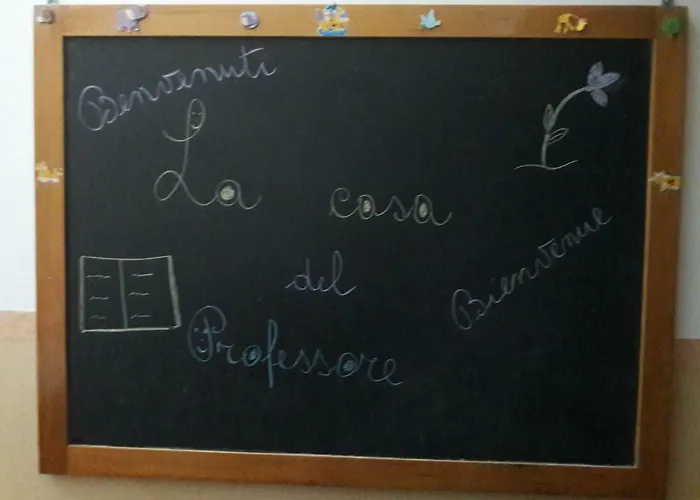 Benvenuti
La casa
del
Professore
Bienvenue